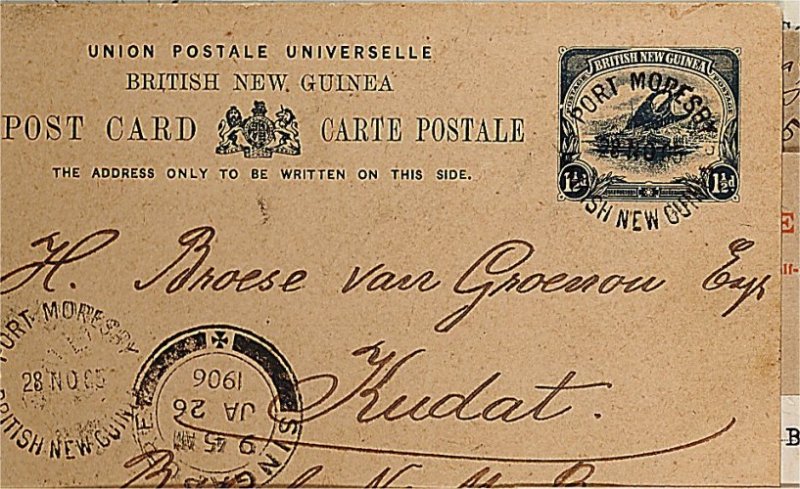 UNION POSTALE UNIVERSELLE
BRITISH NEW GUINEA
POST CARD CARTE POSTALE
THE ADDRESS ONLY TO BE WRITTEN ON THIS SIDE.
BRITISH NEW GUINEA
POSTAGE POSTAGE
1½d 1½d
PORT MORESBY
28 NO 05
ISH NEW GUIN
H. Broese van Groenou Esqr
Kudat.
PORT MORESBY
28 NO 05
BRITISH NEW GUIN
SINGA E
9 45 AM
JA 26
1906
E
B